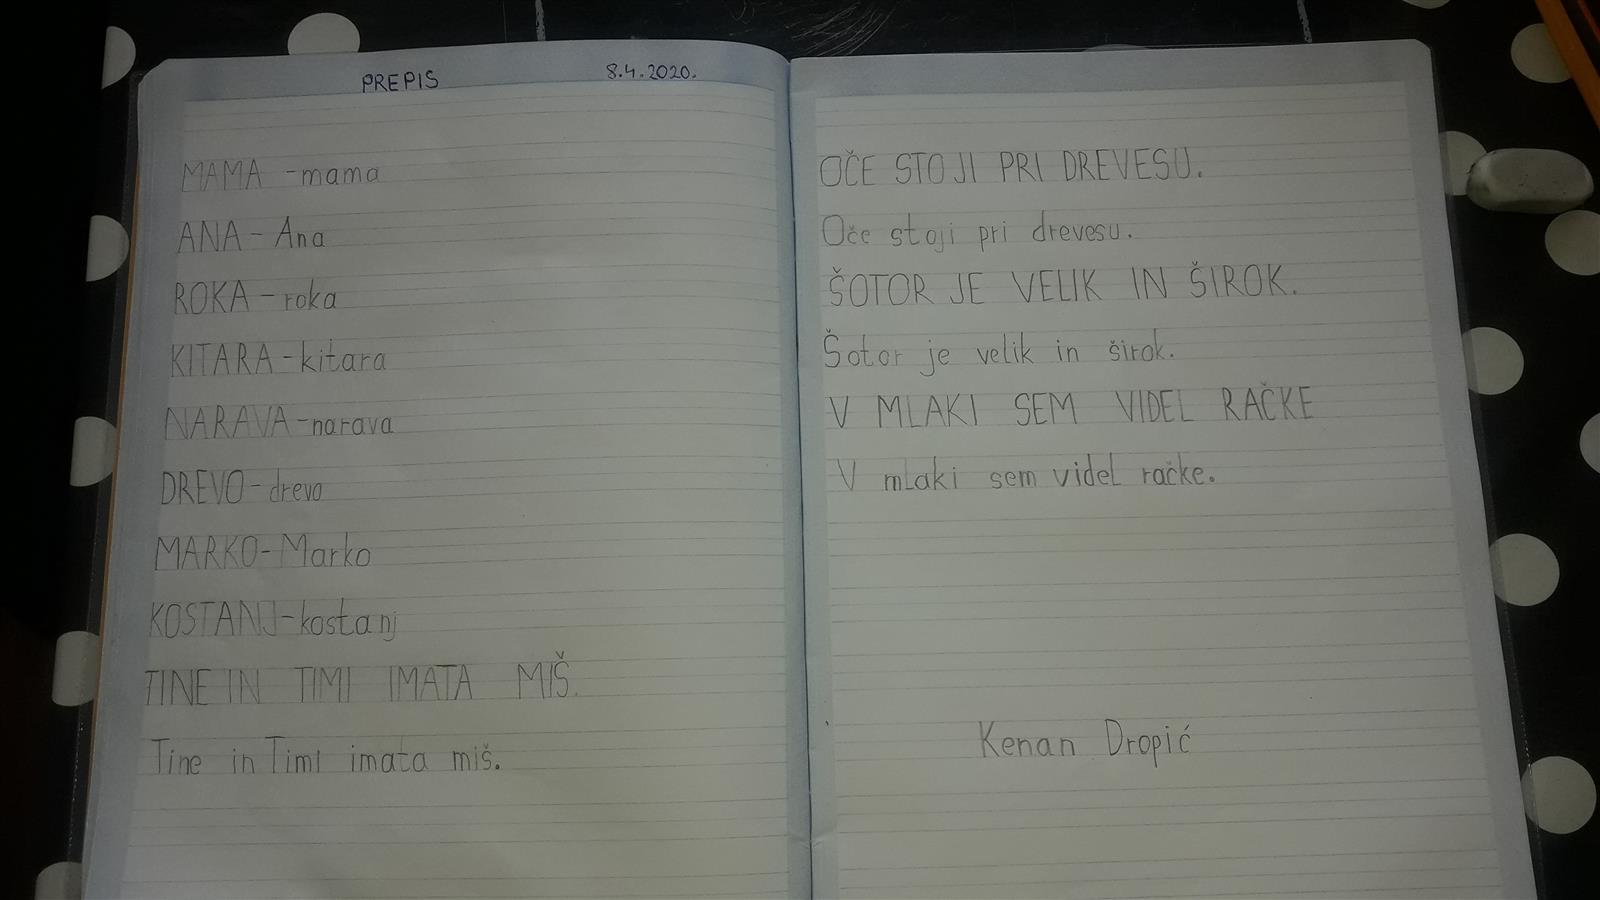 PREPIS 8.4.2020.
MAMA - mama
ANA - Ana
ROKA - roka
KITARA - kitara
NARAVA - narava
DREVO - drevo
MARKO - Marko
KOSTANJ - kostanj
TINE IN TIMI IMATA MIŠ.
Tine in Timi imata miš.
OČE STOJI PRI DREVESU.
Oče stoji pri drevesu.
ŠOTOR JE VELIK IN ŠIROK.
Šotor je velik in širok.
V MLAKI SEM VIDEL RAČKE
V mlaki sem videl račke.
Kenan Dropić